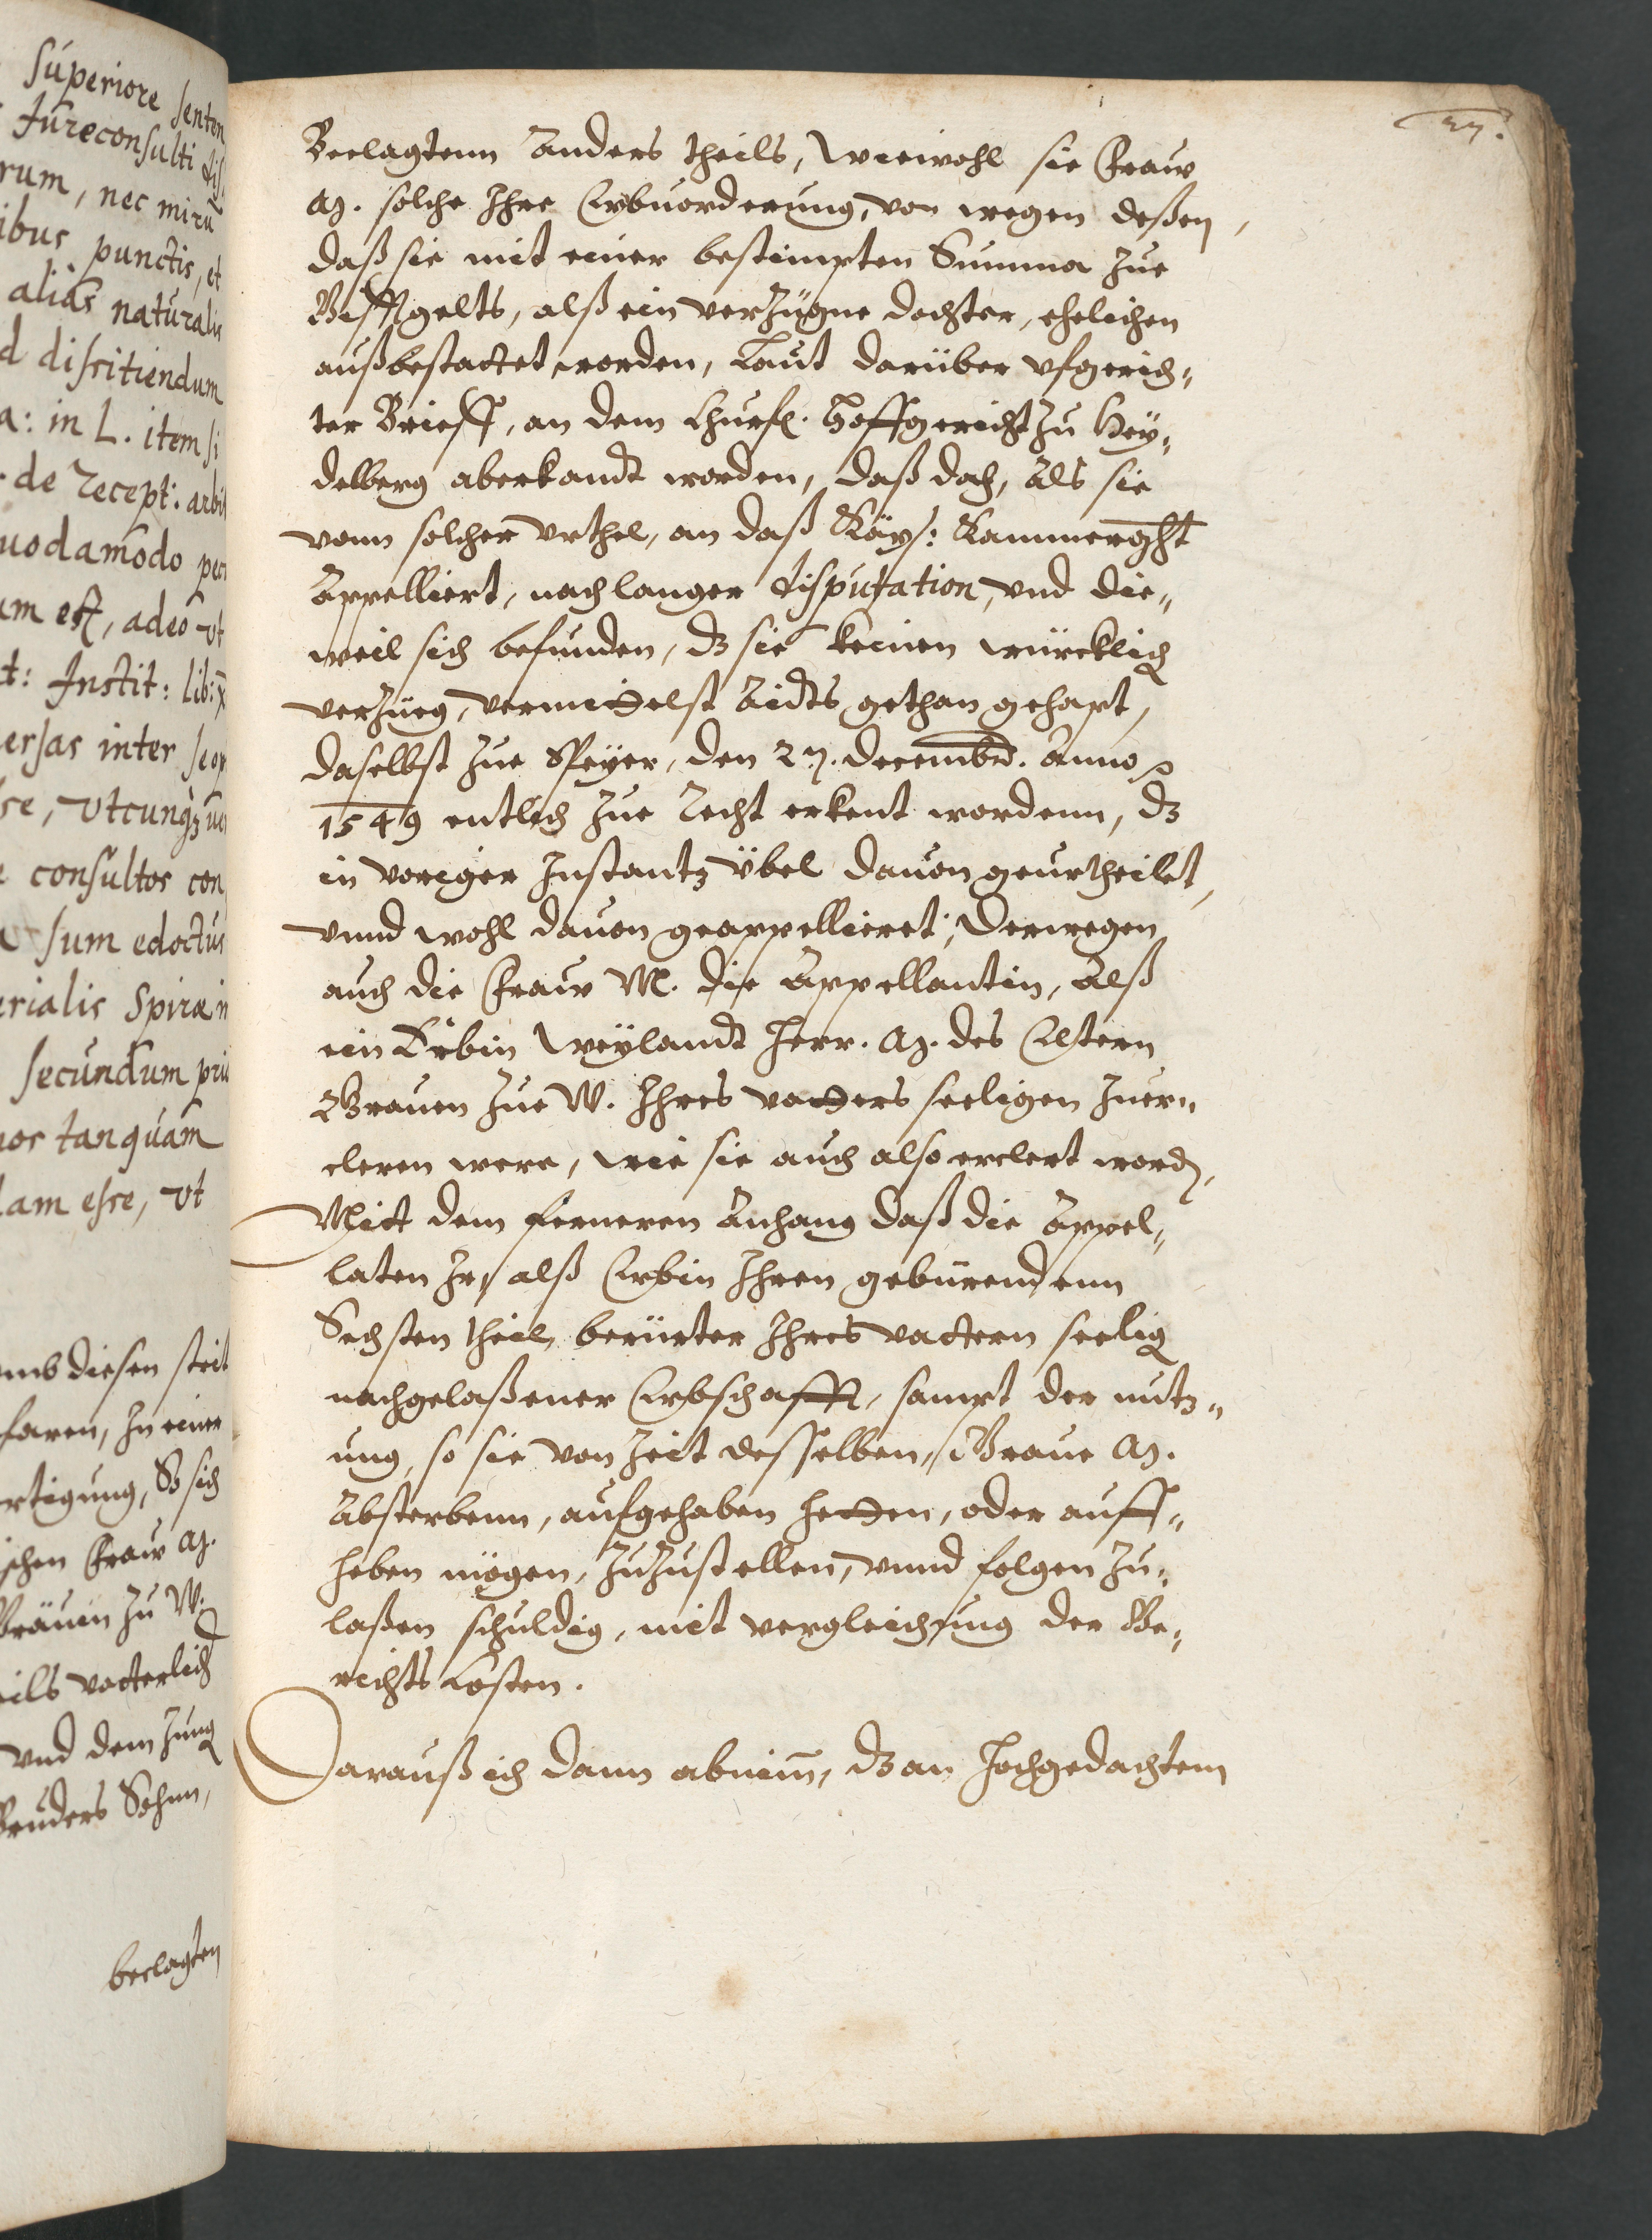 superiore senten
Jureconsulti dis
rum, nec mirū
ibus punctis, et
alias naturalis
d dissitiendum
a: in L. item si
de recept: arbi
uodamodo per
um est, adeo vt
t: Instit: lib:
ersas inter se
se, vtcunqz
consultos con
sum edoctus
erialis Spiræ in
secundum pri
os tanquam
am esse, vt
umb diesen streit
faren, In einer
rtigung, So sich
ischen Fraw M.
Gräuin zu W.
ils vatterlich
vnd dem Jung
Bruders Sohnn,
beclagten
27.
Beclagtenn Anders theils, Wiewohl sie Fraw
M. solche Ihre Erbuorderung, von wegen deßen,
daß sie mit einer bestimpten Summa zue
Wifftgelts, alß ein verzügne dochter, ehelichen
außbestattet worden, Laut darüber vfgerich„
ter Brieff, an dem Churf. Hoffgericht zu Hey„
delberg aberkandt worden, daß doch, Als sie
vonn solcher vrthel, an daß Kays: Kammerght
Appelliert, nach langer disputation, vnd die„
weil sich befunden, dz sie keinen würcklich
verzüeg, vermittelst Aidts gethan gehapt,
daselbst zue Speyer, den 27. decembr. Anno
1549 entlich zue Recht erkent wordenn, dz
in voriger Instantz übel dauon geurtheilet,
vnnd wohl dauon geappellieret; Derwegen
auch die Fraw M. die Appellantin, Alß
ein Erbin Weylandt Herr. M. des Eltern
Grauen zue W. Ihres vatters seeligen zuer„
cleren were, wie sie auch also erclert word.
Mitt dem ferneren Anhang daß die Appel„
laten Ir, alß Erbin Ihren gebürendenn
Sechsten theil, berürter Ihres vattern seelig
nachgelaßener Erbschafft, sampt der nutz„
ung, so sie von Zeit desselben, Graue M.
Absterbenn, aufgehaben hetten, oder auff„
heben mögen, zuzustellen, vnnd folgen zu„
laßen schuldig, mit vergleichung der Ge„
richts Costen.
Darauß ich dann abnim̄, dz an hochgedachtem